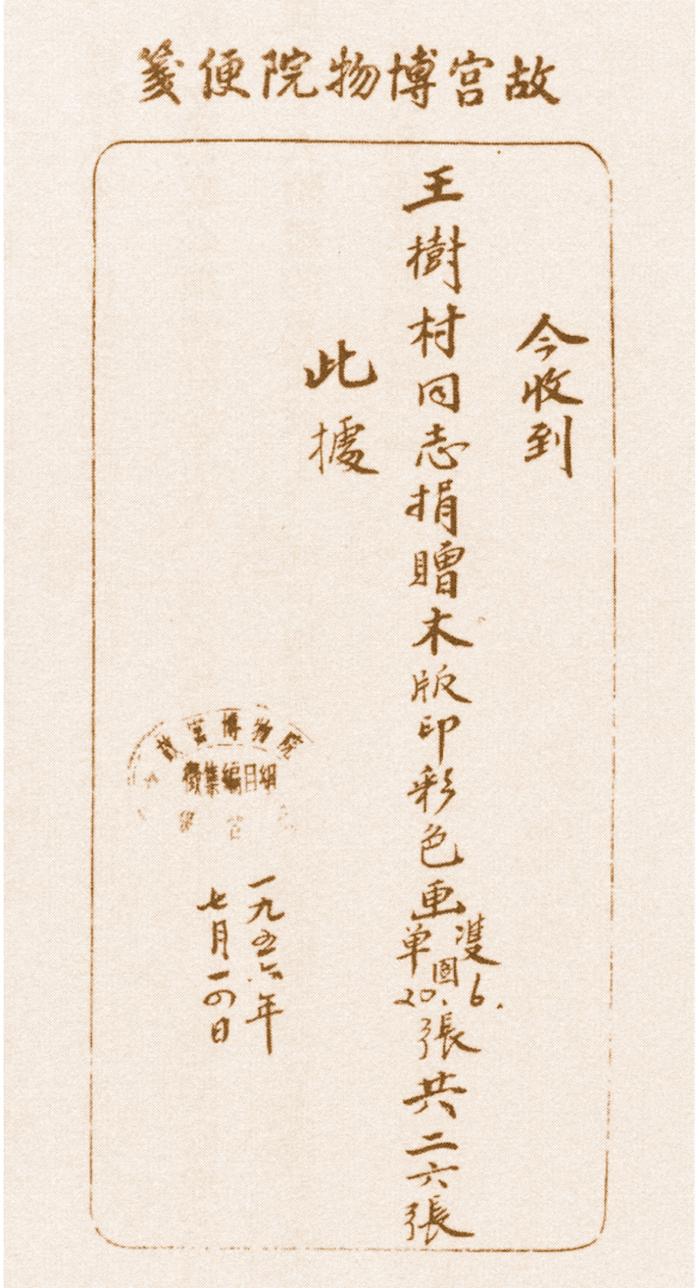 故宫博物院便箋
今收到
王樹村同志捐贈木版印彩色画
雙 6.
圖
单 20.
張共二六張
此據
故宫博物院
徵集編目組
一九五六年
七月一四日